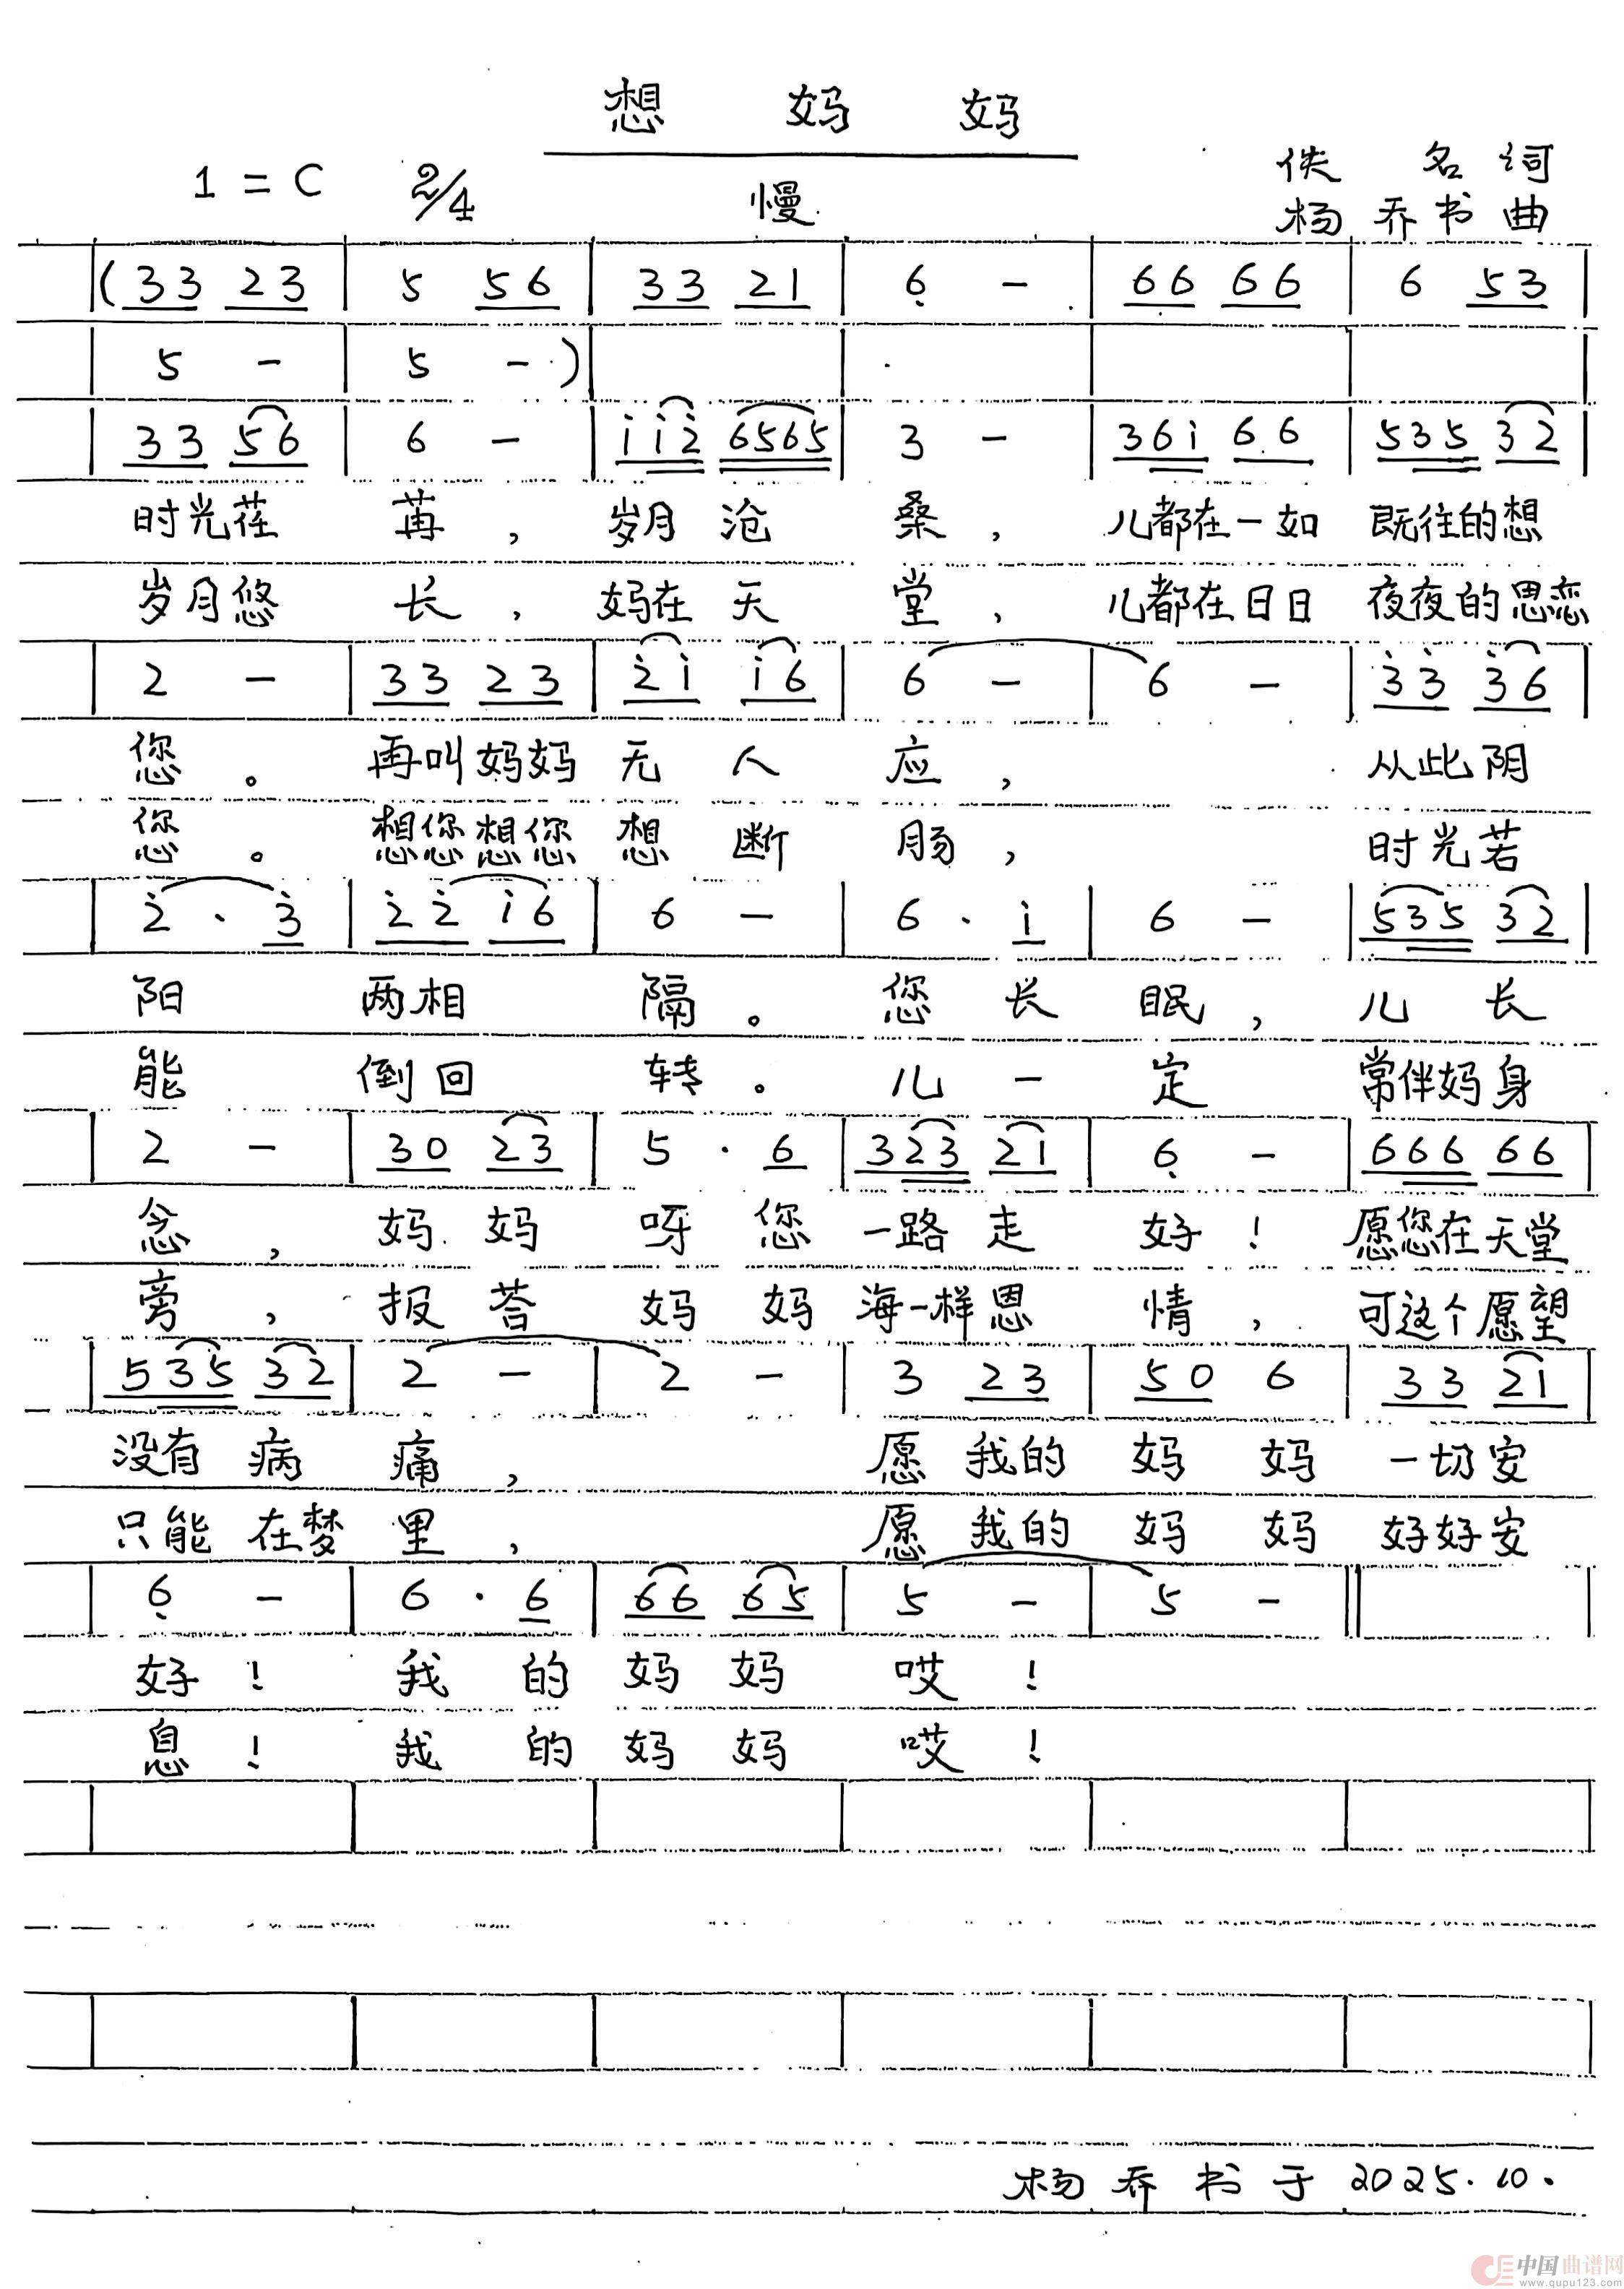 想 妈 妈
1 = C 2/4 慢
佚 名 词
杨 乔 书 曲
(33 23 | 5 56 | 33 21 | 6̣ - | 66 66 | 6 53 |
5 - | 5 -) | | | |
33 56 | 6 - | i̇i̇2̇ 6565 | 3 - | 36i̇ 66 | 535 32 |
时光荏 苒， 岁月沧 桑， 儿都在一如 既往的想
岁月悠 长， 妈在天 堂， 儿都在日日 夜夜的思恋
2 - | 33 23 | 2̇i̇ i̇6 | 6 - | 6 - | 3̇3̇ 3̇6 |
您。 再叫妈妈 无人 应， 从此阴
您。 想您想您 想断 肠， 时光若
2̇ · 3̇ | 2̇2̇ i̇6 | 6 - | 6 · i̇ | 6 - | 535 32 |
阳 两相 隔。 您长 眠， 儿长
能 倒回 转。 儿一 定 常伴妈身
2 - | 30 23 | 5 · 6 | 323 21 | 6̣ - | 666 66 |
念， 妈妈 呀您 一路走 好！ 愿您在天堂
旁， 报荅 妈妈 海一样恩 情， 可这个愿望
535 32 | 2 - | 2 - | 3 23 | 50 6 | 33 21 |
没有病 痛， 愿我的 妈妈 一切安
只能在梦 里， 愿我的 妈妈 好好安
6̣ - | 6 · 6 | 66 65 | 5 - | 5 - ||
好！ 我的 妈妈 哎！
息！ 我的 妈妈 哎！
杨 乔 书 于 2025.10.
中国曲谱网
www.qupu123.com